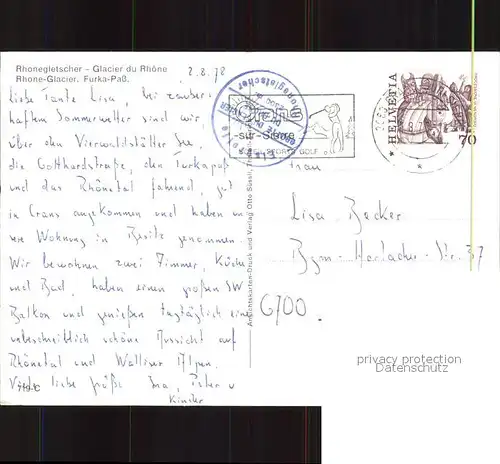 Rhonegletscher - Glacier du Rhône
Rhone-Glacier. Furka-Paß.
2.8.78
liebe Tante Lisa, bei zauber-
haftem Sommerwetter sind wir,
über den Vierwaldstätter See,
die Gotthardstraße, den Furkapaß
und das Rhônetal fahrend, gut
in Crans angekommen und haben un-
sere Wohnung in Besitz genommen.
Wir bewohnen zwei Zimmer, Küche
und Bad, haben einen großen SW
Balkon und genießen tagtäglich eine
unbeschreiblich schöne Aussicht auf
Rhônetal und Walliser Alpen.
Viele liebe Grüße Ina, Peter u
Kinder
Ansichtskarten-Druck und Verlag Otto Süssli
Rhonegletscher
-sur-Sierre
SPORTS GOLF
HELVETIA
70
Frau
Lisa Becker
Bgm-Horlacher-Str. 37
6700.
privacy protection
Datenschutz